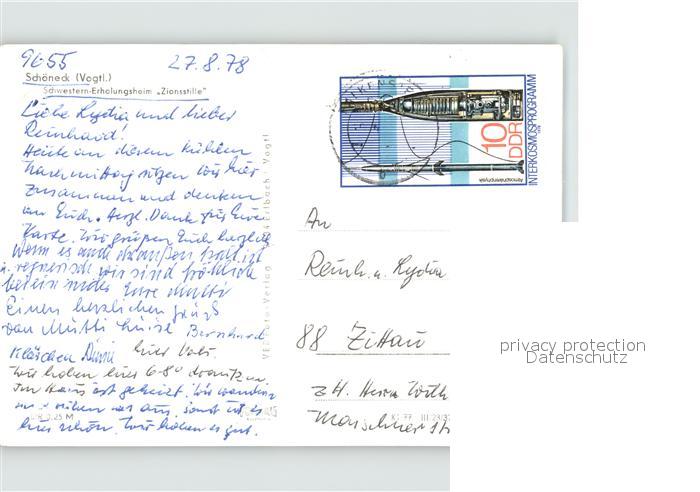 96-55
27.8.78
Schöneck (Vogtl.)
Schwestern-Erholungsheim „Zionsstille"
Liebe Lydia und lieber
Reinhard!
Heute an diesem kühlen
sitzen wir hier
zusammen und denken
an Euch. Herzl. Dank für Eure
Karte. Wir grüßen Euch herzlich
Wenn es auch draußen kalt ist
u. regnerisch wir sind fröhlich
Eure Mutti
Einen herzlichen Gruß
von Mutti Luise Bernhard
Klärchen Euer Vati.
Wir haben hier 6-8° draußen
Im Haus ist geheizt. Wir wandern
und ruhen uns aus, sonst ist es
hier schön. Wir haben es gut.
VEB Foto-Verlag Erlbach Vogtl
10
DDR
INTERKOSMOSPROGRAMM
1978
An
Reinh. u. Lydia
88 Zittau
z H. Herrn
privacy protection
Datenschutz